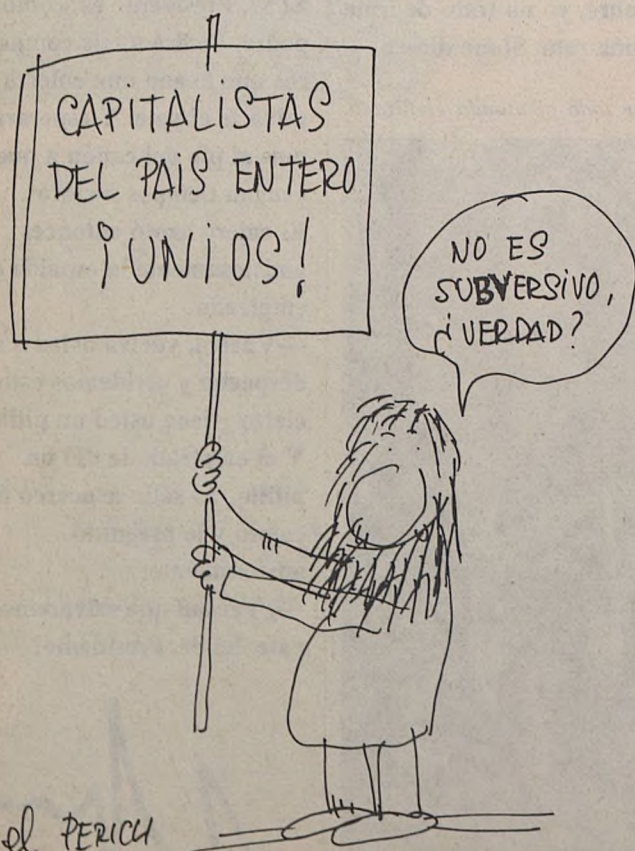 CAPITALISTAS
DEL PAIS ENTERO
¡UNIOS!
NO ES
SUBVERSIVO,
¿VERDAD?
el PERICH